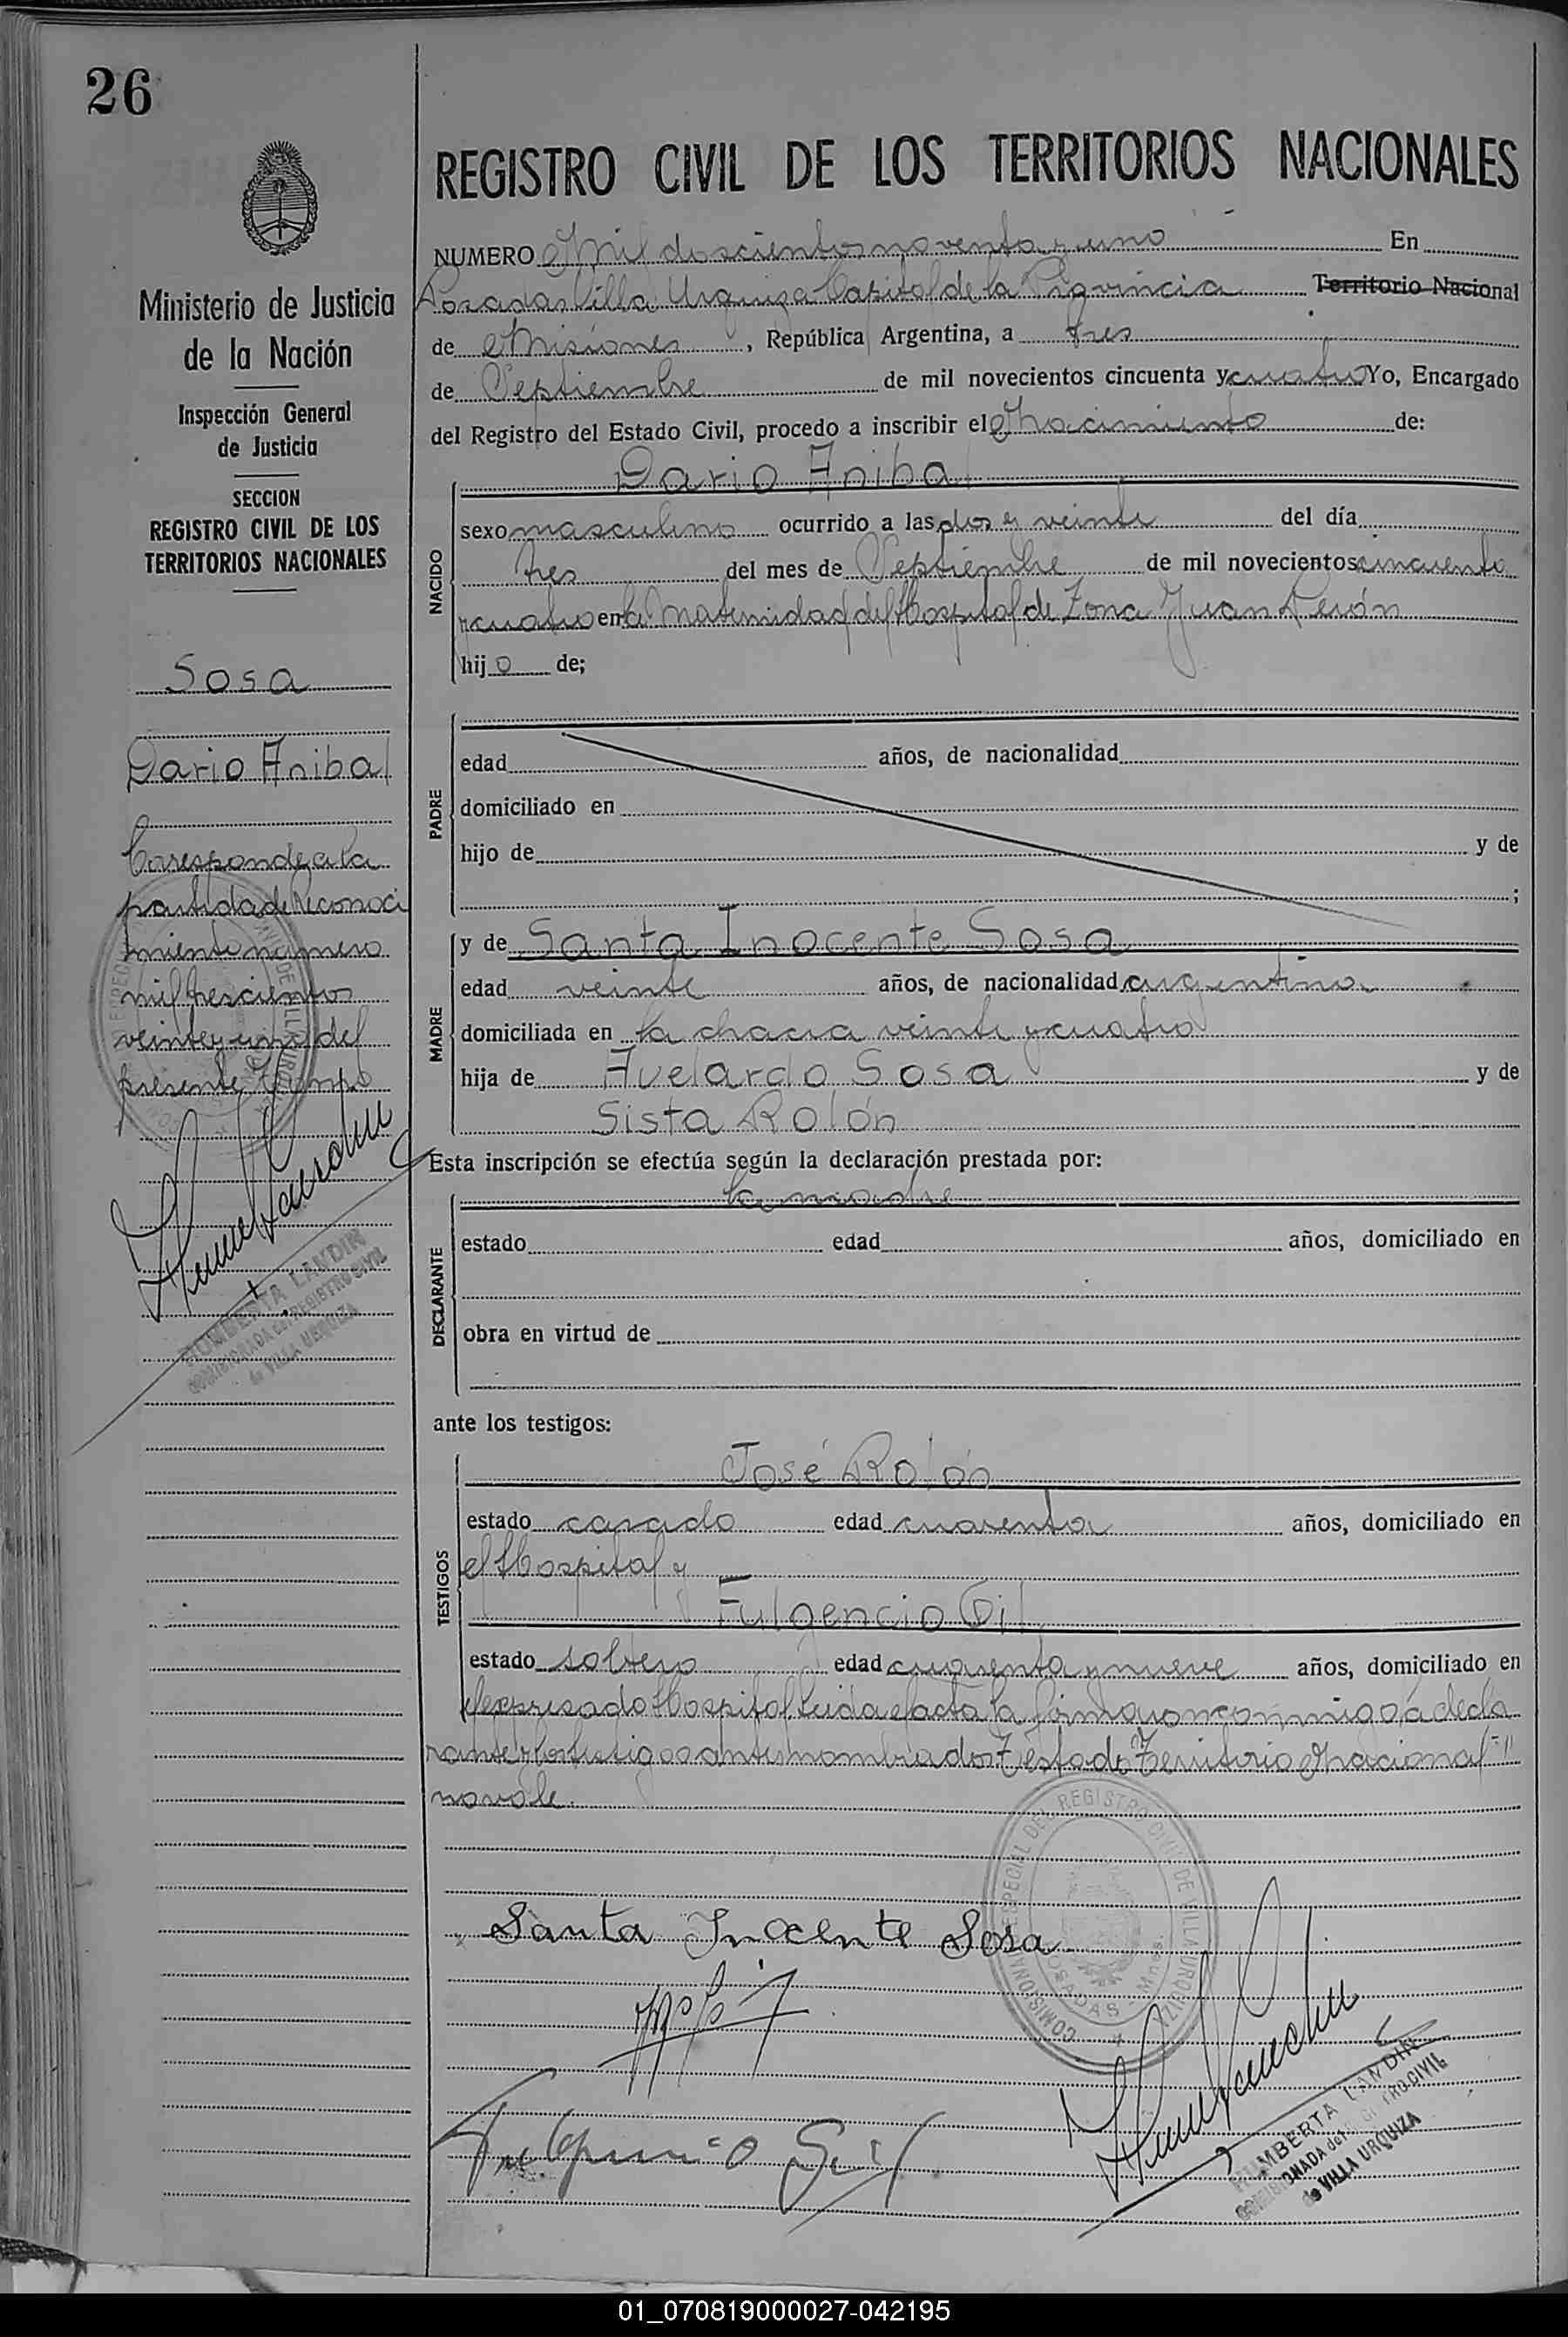 26
REGISTRO CIVIL DE LOS TERRITORIOS NACIONALES
NUMERO Mil doscientos noventa y uno En
Posadas Villa Urquiza Capital de la Provincia Territorio Nacional
de Misiones, República Argentina, a tres
de Septiembre de mil novecientos cincuenta y cuatro Yo, Encargado
del Registro del Estado Civil, procedo a inscribir el Nacimiento de:
Dario Anibal
NACIDO
sexo masculino ocurrido a las dos y veinte del día
tres del mes de Septiembre de mil novecientos cincuenta
y cuatro en la Maternidad del Hospital de Zona Juan Perón
hijo de;
PADRE
edad años, de nacionalidad
domiciliado en
hijo de y de
;
MADRE
y de Santa Inocente Sosa
edad veinte años, de nacionalidad argentina
domiciliada en la chacra veinte y cuatro
hija de Avelardo Sosa y de
Sista Rolón
Esta inscripción se efectúa según la declaración prestada por:
la madre
DECLARANTE
estado edad años, domiciliado en
obra en virtud de
ante los testigos:
TESTIGOS
José Rolón
estado casado edad cuarenta años, domiciliado en
el Hospital y
Fulgencio Gil
estado soltero edad cuarenta y nueve años, domiciliado en
el expresado Hospital Leida el acta la firmaron conmigo la decla
rante y los testigos antes nombrados Testado "Territorio Nacional"
no vale.
Santa Inocente Sosa
Fulgencio Gil
COMISIONADA ESPECIAL DEL REGISTRO CIVIL DE VILLA URQUIZA
POSADAS - Mnes.
HUMBERTA LANDIN
COMISIONADA del REGISTRO CIVIL
de VILLA URQUIZA
Ministerio de Justicia
de la Nación
Inspección General
de Justicia
SECCION
REGISTRO CIVIL DE LOS
TERRITORIOS NACIONALES
Sosa
Dario Anibal
Corresponde a la
partida de Reconoci
miento número
mil trescientos
veinte y uno del
presente Tomo
HUMBERTA LANDIN
COMISIONADA del REGISTRO CIVIL
de VILLA URQUIZA
01_070819000027-042195